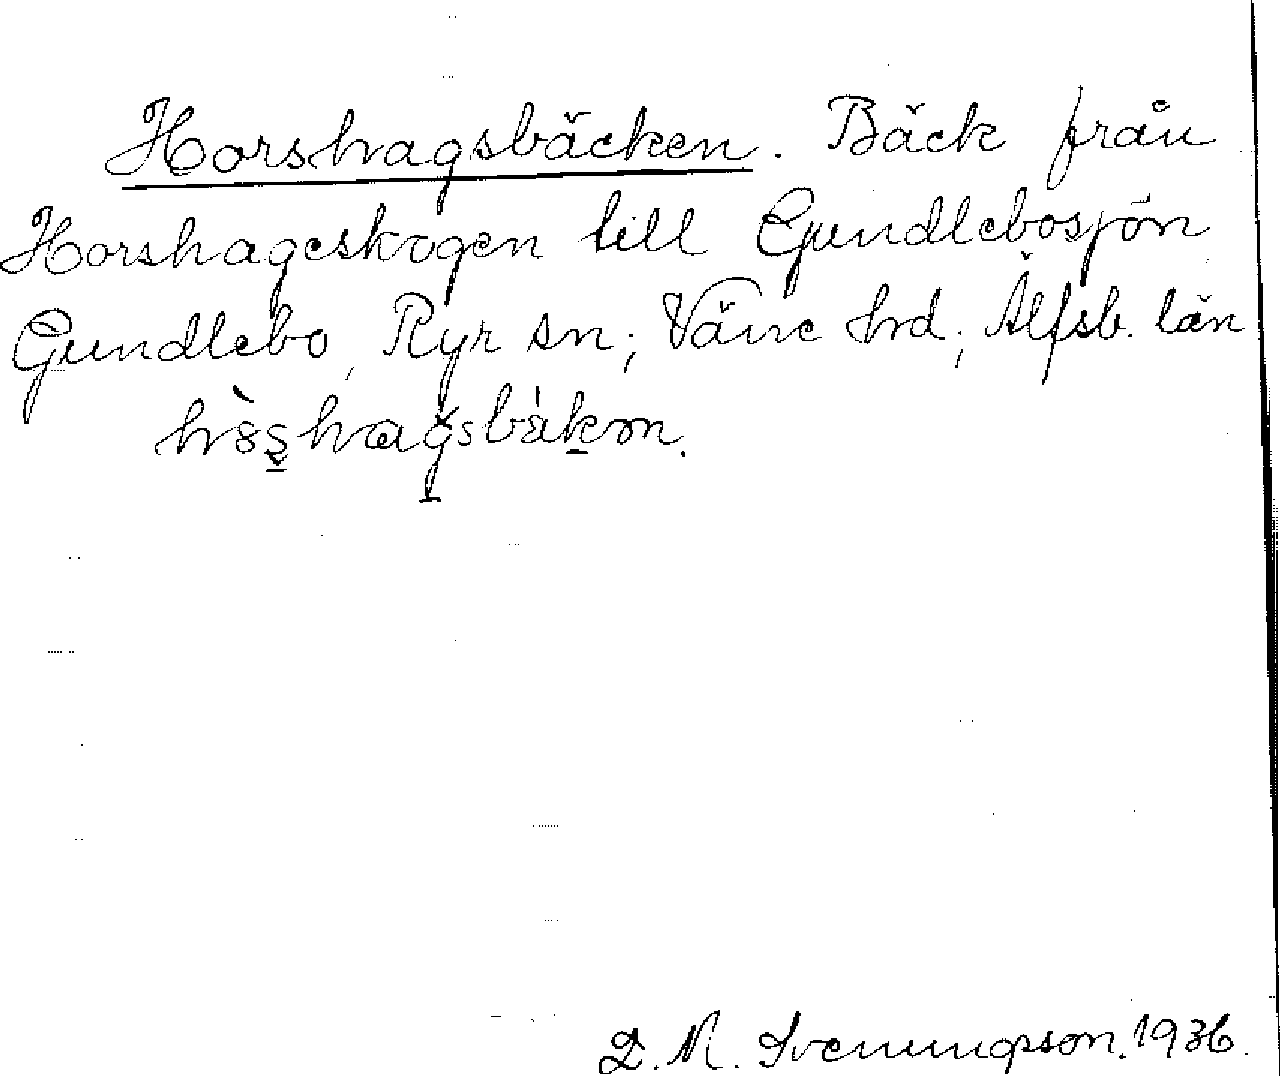 Horshagsbäcken. Bäck från
Horshageskogen till Gundlebosjön
Gundlebo, Ryr sn; Väne hrd; Älfsb. län
D. M. Svenungson. 1936.